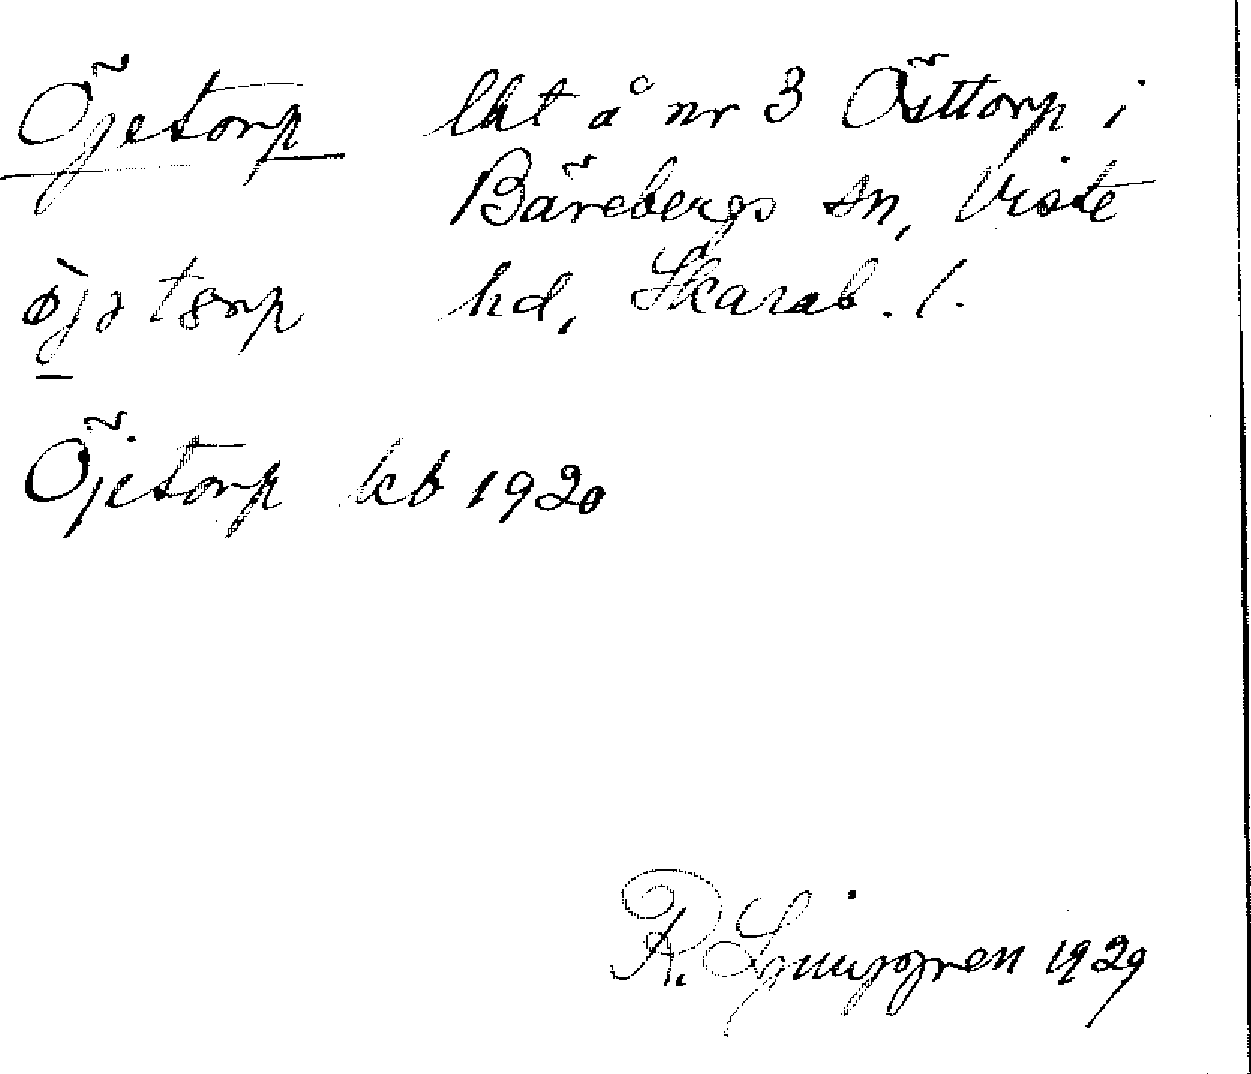 Öjetorp lht å nr 3 Östtorp i
Bärebergs sn, Viste
òjətɷrp hd, Skarab. l.
Öjetorp kb 1920
R. Ljunggren 1929